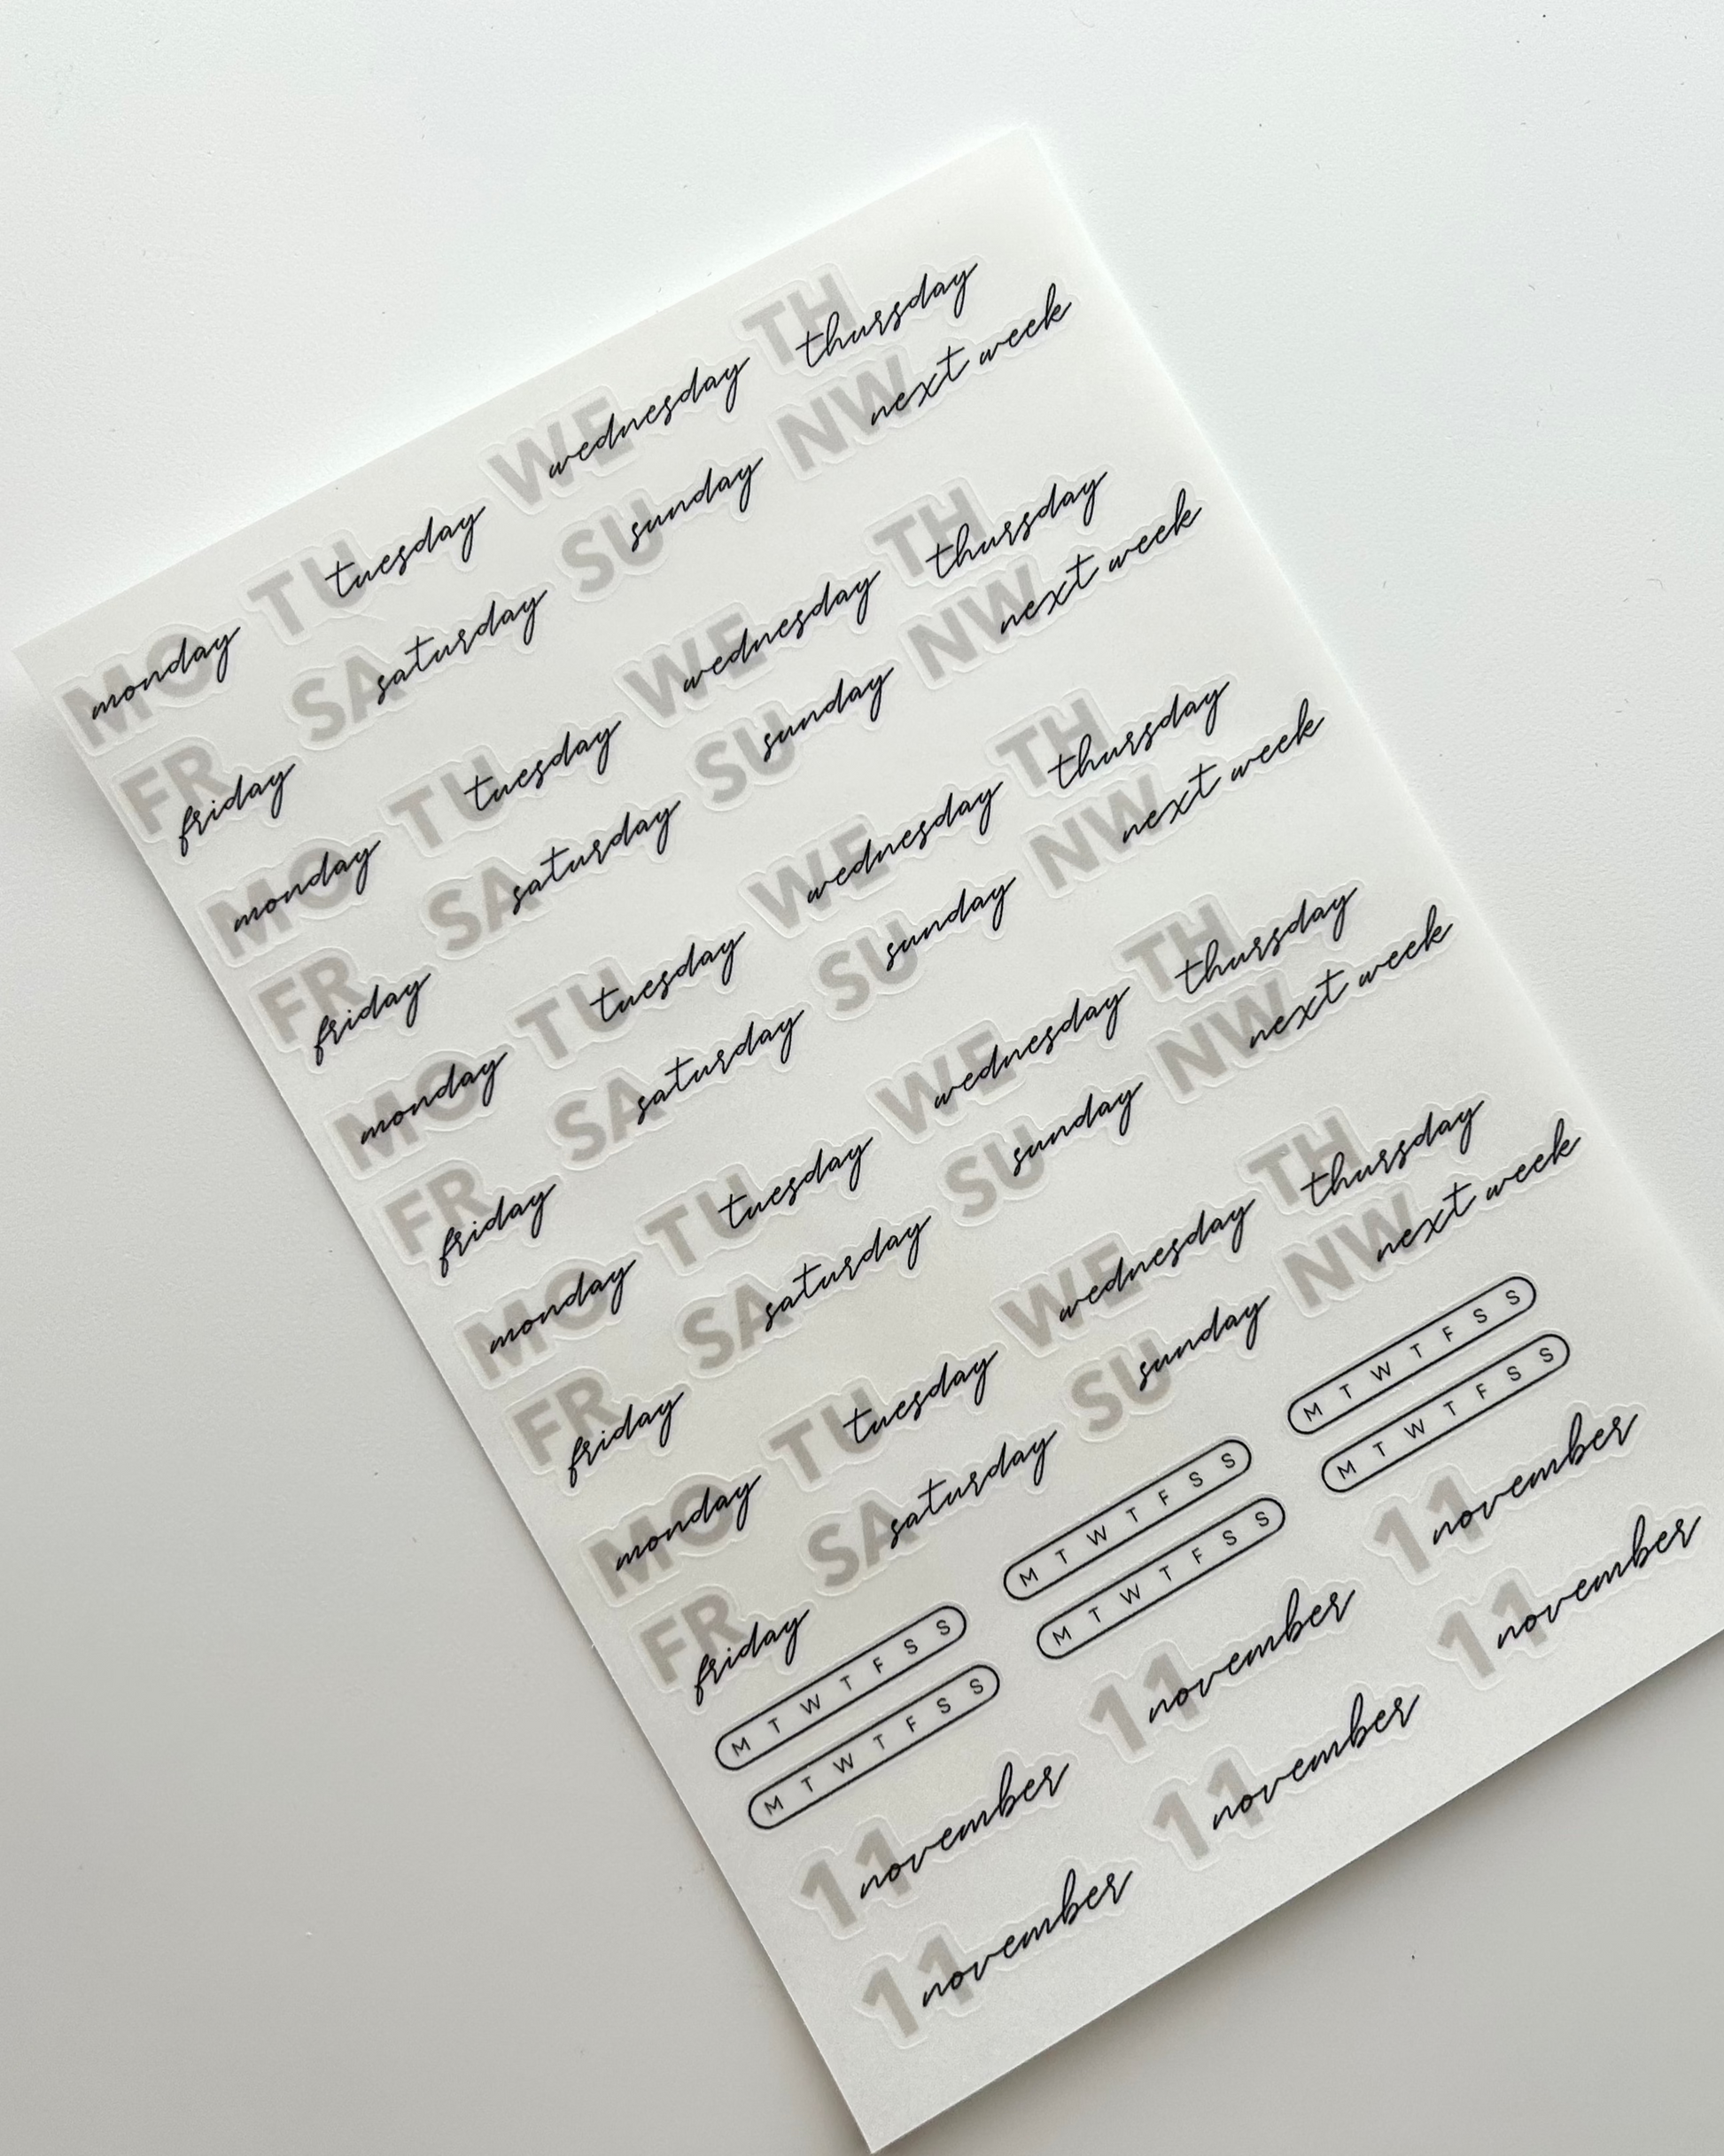 MO monday TU tuesday WE wednesday TH thursday
FR friday SA saturday SU sunday NW next week
MO monday TU tuesday WE wednesday TH thursday
FR friday SA saturday SU sunday NW next week
MO monday TU tuesday WE wednesday TH thursday
FR friday SA saturday SU sunday NW next week
MO monday TU tuesday WE wednesday TH thursday
FR friday SA saturday SU sunday NW next week
MO monday TU tuesday WE wednesday TH thursday
FR friday SA saturday SU sunday NW next week
M T W T F S S M T W T F S S M T W T F S S
M T W T F S S M T W T F S S M T W T F S S
11 november 11 november 11 november
11 november 11 november 11 november